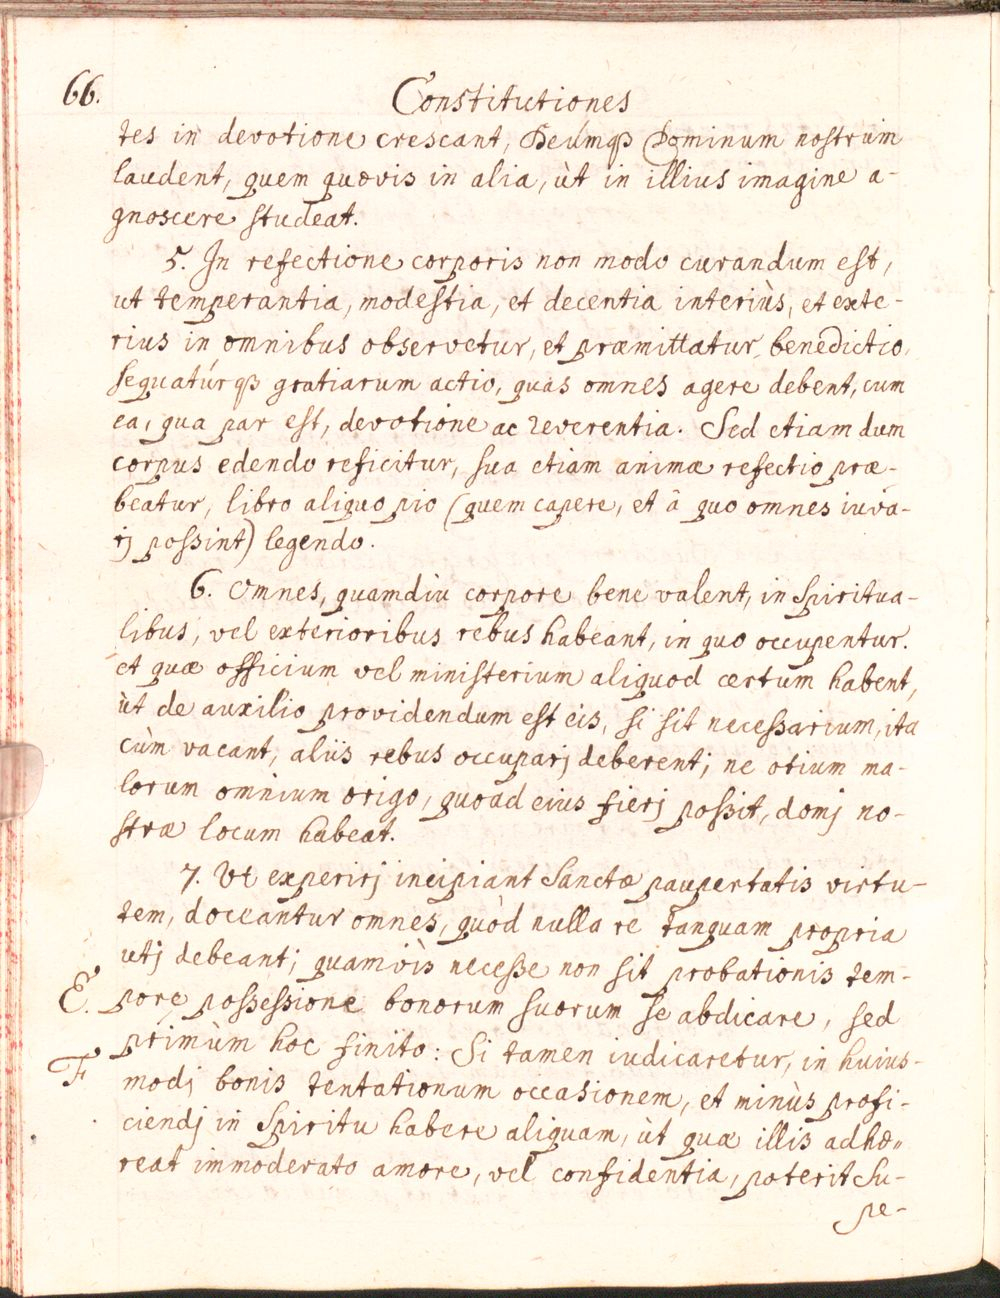 66.
Constitutiones
tes in devotione crescant, Deumq3 Dominum nostrum
laudent, quem quovis in alia, ùt in illius imagine a-
gnoscere studeat.
5. In refectione corporis non modo curandum est,
ut temperantia, modestia, et decentia interiùs, et exte-
rius in omnibus observetur, et præmittatur benedictio,
sequatúrq3 gratiarum actio, quas omnes agere debent, cum
ea, qua par est, devotione ac reverentia. Sed etiam dum
corpus edendo reficitur, sua etiam animæ refectio præ-
beatur, libro aliquo pio (quem capere, et â quo omnes iuva-
rj poßint) legendo.
6. Omnes, quamdiu corpore bene valent, in Spiritua-
libus, vel exterioribus rebus habeant, in quo occupentur.
et quæ officium vel ministerium aliquod certum habent,
ùt de auxilio providendum est eis, si sit neceßarium, ita
cùm vacant, aliis rebus occuparj deberent; ne otium ma-
lorum omnium origo, quoad eius fierj poßit, domj no-
stræ locum habeat.
7. Vt experirj incipiant Sanctæ paupertatis virtu-
tem, doceantur omnes, quòd nulla re tanquam propria
utj debeant; quamvìs neceße non sit probationis tem-
E. pore poßeßione bonorum suorum se abdicare, sed
primùm hoc finito: Si tamen iudicaretur, in huius-
F modj bonis tentationum occasionem, et minùs profi-
ciendj in Spiritu habere aliquam, ùt quæ illis adhæ=
reat immoderato amore, vel confidentia, poterit Su-
pe-